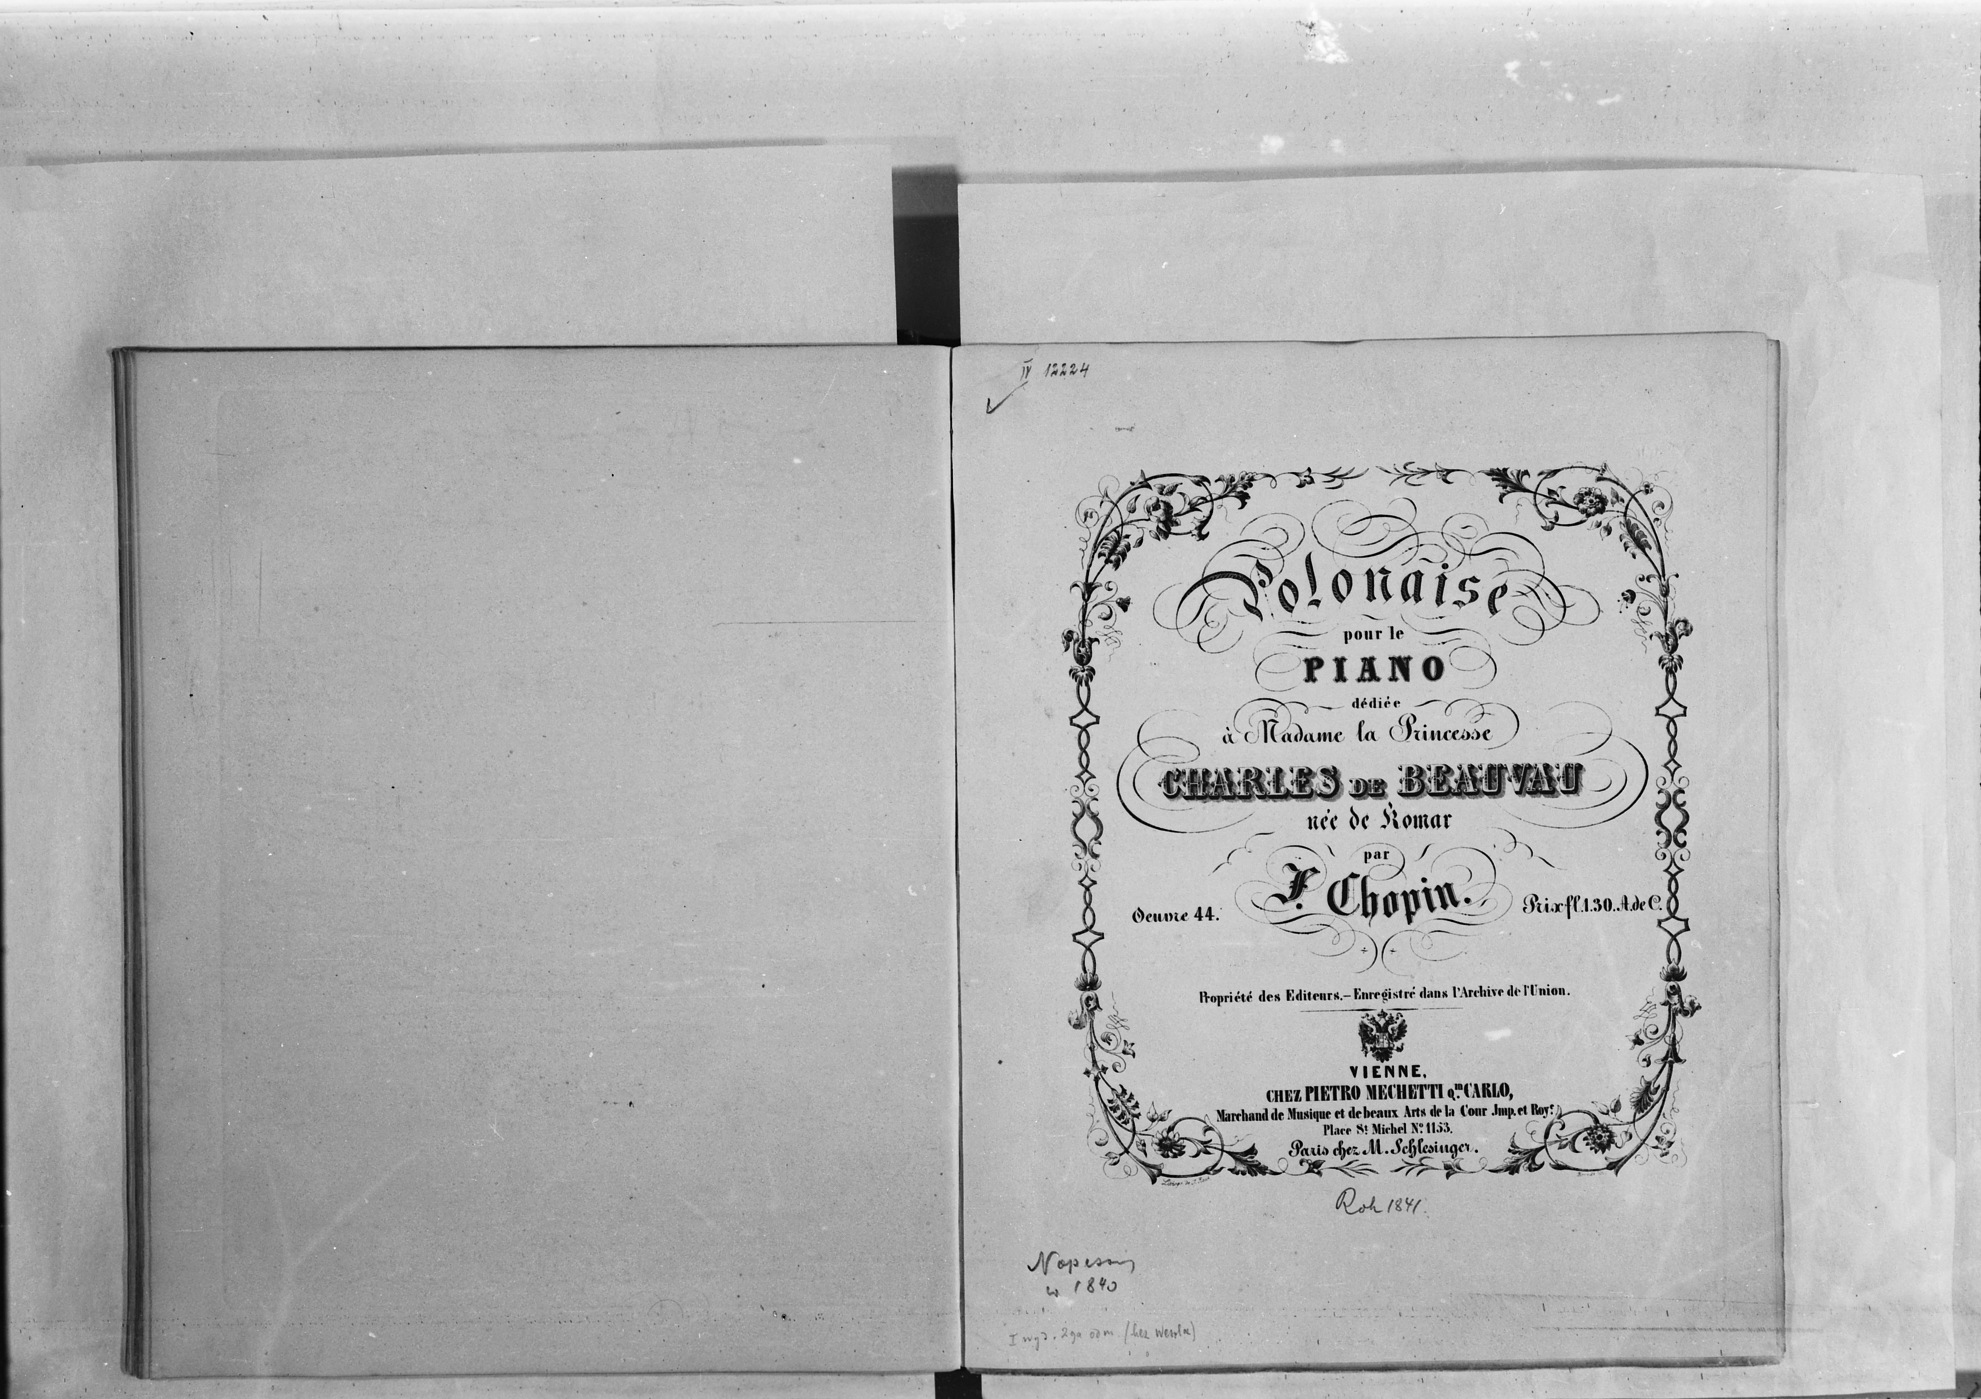 IV 12224
Polonaise
pour le
PIANO
dédiée
à Madame la Princesse
CHARLES DE BEAUVAU
née de Komar
par
F. Chopin.
Oeuvre 44.
Prix fl.1.30.A.de C.
Propriété des Editeurs.—Enregistré dans l'Archive de l'Union.
VIENNE,
CHEZ PIETRO MECHETTI qm. CARLO,
Marchand de Musique et de beaux Arts de la Cour Imp. et Roy.
Place St. Michel No. 1153.
Paris chez M. Schlesinger.
Rok 1841.
w 1840
I wyd.